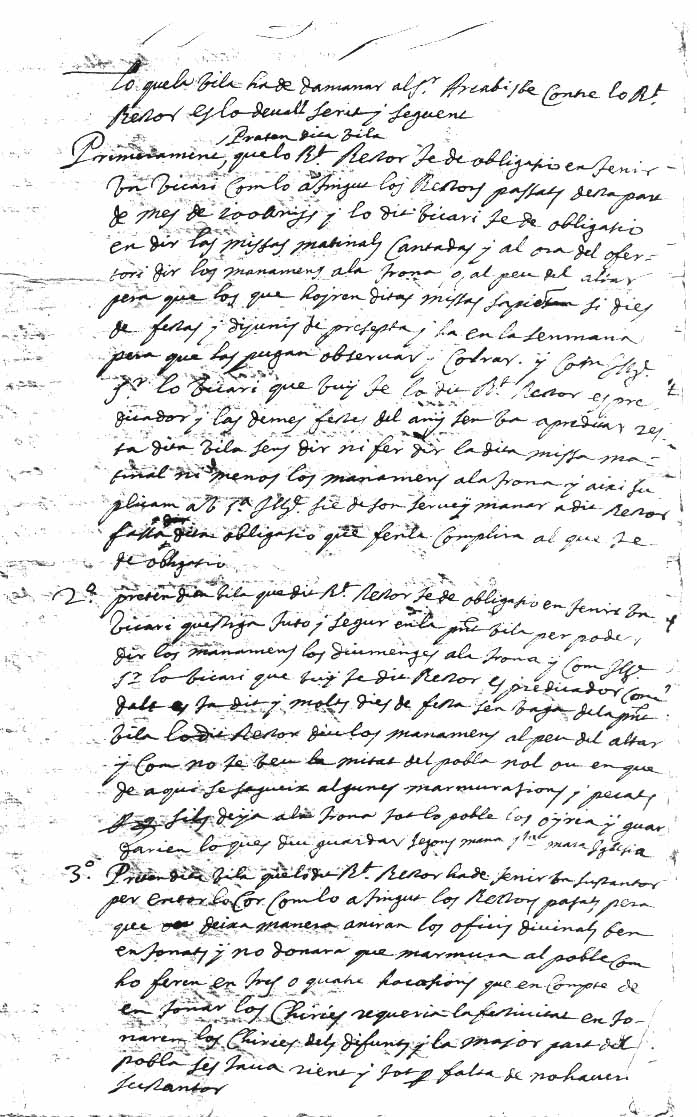 Lo que la vila ha de damanar al Sr. Arcabisbe contre lo Rt.
Rector es lo devall scrit y seguent
Praten dita vila
Primerament, que lo Rt. Rector te de obligatio en tenir
un vicari com lo a tingut los Rectors passats desta part
de mes de 200 anys y lo dit vicari te de obligatio
en dir las missas matinals cantadas y al ora del ofer-
tori dir los manamens a la trona, o, al peu del altar
pera que los que hojren ditas missas sapien si dies
de festas y dijunis de presepta y ha en la senmana
pera que las pugan observar y cobrar. y com Illₑ.
Sr. lo vicari que vuy te lo dit Rt. Rector es pre
dicador y las demes festes del any sen va a predicar res-
ta dita vila sens dir ni fer dir la dita missa ma-
tinal ni menos los manamens a la trona y aixi su
plicam a V. Sa. Illₑ. sie de son servey manar a dit Rector
dita obligatio que fenla complira al que te
de obligatio
2º. preten dita vila que dit Rt. Rector te de obligatio en tenir un
vicari que tinga tuto y segur en la pnt vila per poder
dir los manamens los diumenges a la trona y com Illₑ
Sr. lo vicari que vuy te dit Rector es predicador com
dalt es ja dit y molts dies de festa sen vaga de la pnt
vila lo dit Rector diu los manamens al peu del altar
y com no te veu la mitat del pobla nol ou en que
de aqui se sagueix algunes marmurations y pecats
sils deya a la trona tot lo poble los oyria y guar
darien lo ques diu guardar segons mana mara Iglesia
3º. Preten dita vila que lo dit Rt. Rector ha de tenir un sustantor
per entor lo Cor com lo a tingut los Rectors pasats pera
que de dexa manera aniran los oficis divinals ben
entonats y no donara que marmura al poble com
ho feren en tres o quatre hocations que en compte de
entonar los Chiries requeria la festivitat ento-
naren los Chiries dels difunts y la major part del
pobla ses tava rient y tot p falta de no haver
sustantor